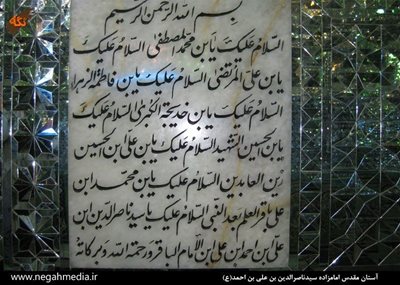 نگاه
بسم الله الرحمن الرحیم
السلام علیک یابن محمد المصطفی السلام علیک
یابن علی المرتضی السلام علیک یابن فاطمة الزهرا
السلام علیک یابن خدیجة الکبری السلام علیک
یابن الحسین الشهید السلام علیک یابن علی بن الحسین
زین العابدین السلام علیک یابن محمد ابن
علی باقر العلم بعد النبی السلام علیک یا سید ناصر الدین ابن
علی ابن احمد ابن علی بن الامام الباقر و رحمة الله و برکاته
www.negahmedia.ir
آستان مقدس امامزاده سیدناصرالدین بن علی بن احمد(ع)